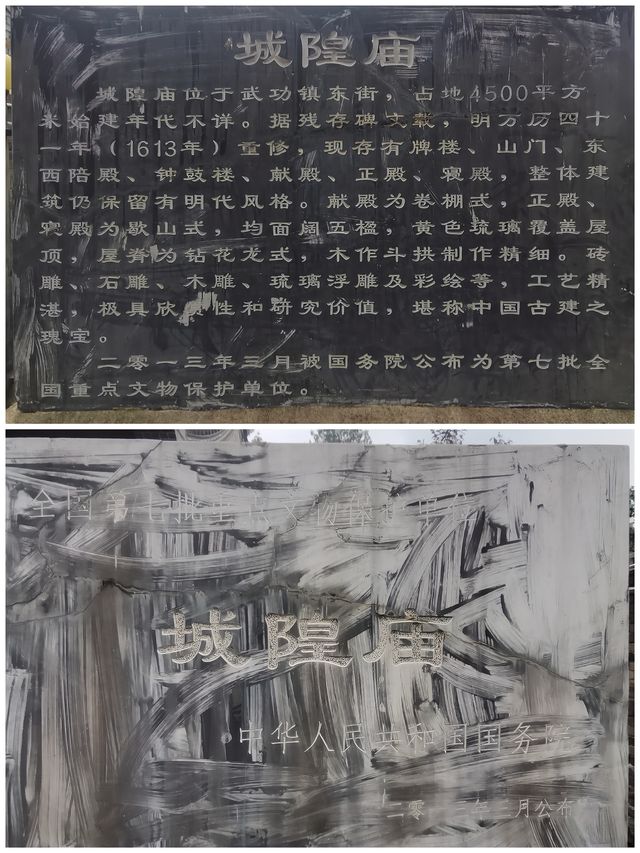 城隍庙
城隍庙位于武功镇东街，占地4500平方
米始建年代不详。据残存碑文载，明万历四十
一年（1613年）重修，现存有牌楼、山门、东
西陪殿、钟鼓楼、献殿、正殿、寝殿，整体建
筑仍保留有明代风格。献殿为卷棚式，正殿、
寝殿为歇山式，均面阔五楹，黄色琉璃覆盖屋
顶，屋脊为钻花龙式，木作斗拱制作精细。砖
雕、石雕、木雕、琉璃浮雕及彩绘等，工艺精
湛，极具欣 性和研究价值，堪称中国古建之
瑰宝。
二零一三年三月被国务院公布为第七批全
国重点文物保护单位。
全国第七批重点文物保护单位
城隍庙
中华人民共和国国务院
二零一三年三月公布